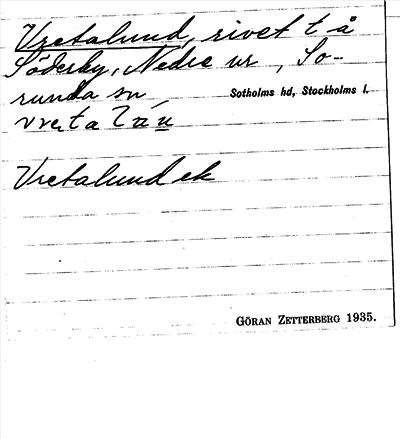 Vretalund, rivet t å
Söderby, Nedre ur, So-
runda sn
Sotholms hd, Stockholms l.
Vretalund ek
GÖRAN ZETTERBERG 1935.